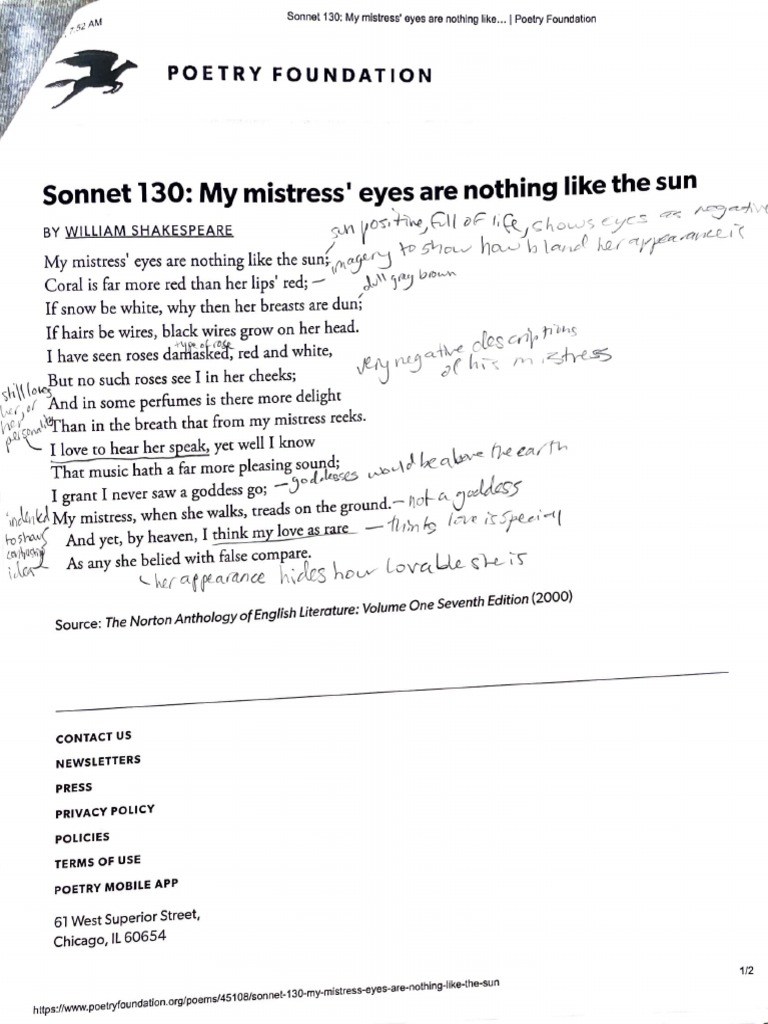 7:52 AM
Sonnet 130: My mistress' eyes are nothing like... | Poetry Foundation
POETRY FOUNDATION
Sonnet 130: My mistress' eyes are nothing like the sun
BY WILLIAM SHAKESPEARE
sun positive, full of life, shows eyes as negative
imagery to show how bland her appearance is
My mistress' eyes are nothing like the sun;
Coral is far more red than her lips' red; –
dull gray brown
If snow be white, why then her breasts are dun;
If hairs be wires, black wires grow on her head.
type of rose
I have seen roses damasked, red and white,
very negative descriptions
of his mistress
But no such roses see I in her cheeks;
still loves
her, or
her
personality
And in some perfumes is there more delight
Than in the breath that from my mistress reeks.
I love to hear her speak, yet well I know
That music hath a far more pleasing sound;
I grant I never saw a goddess go; – goddesses would be above the earth
My mistress, when she walks, treads on the ground. – not a goddess
indented
to show
idea
And yet, by heaven, I think my love as rare – thinks love is special
As any she belied with false compare.
her appearance hides how lovable she is
Source: The Norton Anthology of English Literature: Volume One Seventh Edition (2000)
CONTACT US
NEWSLETTERS
PRESS
PRIVACY POLICY
POLICIES
TERMS OF USE
POETRY MOBILE APP
61 West Superior Street,
Chicago, IL 60654
1/2
https://www.poetryfoundation.org/poems/45108/sonnet-130-my-mistress-eyes-are-nothing-like-the-sun